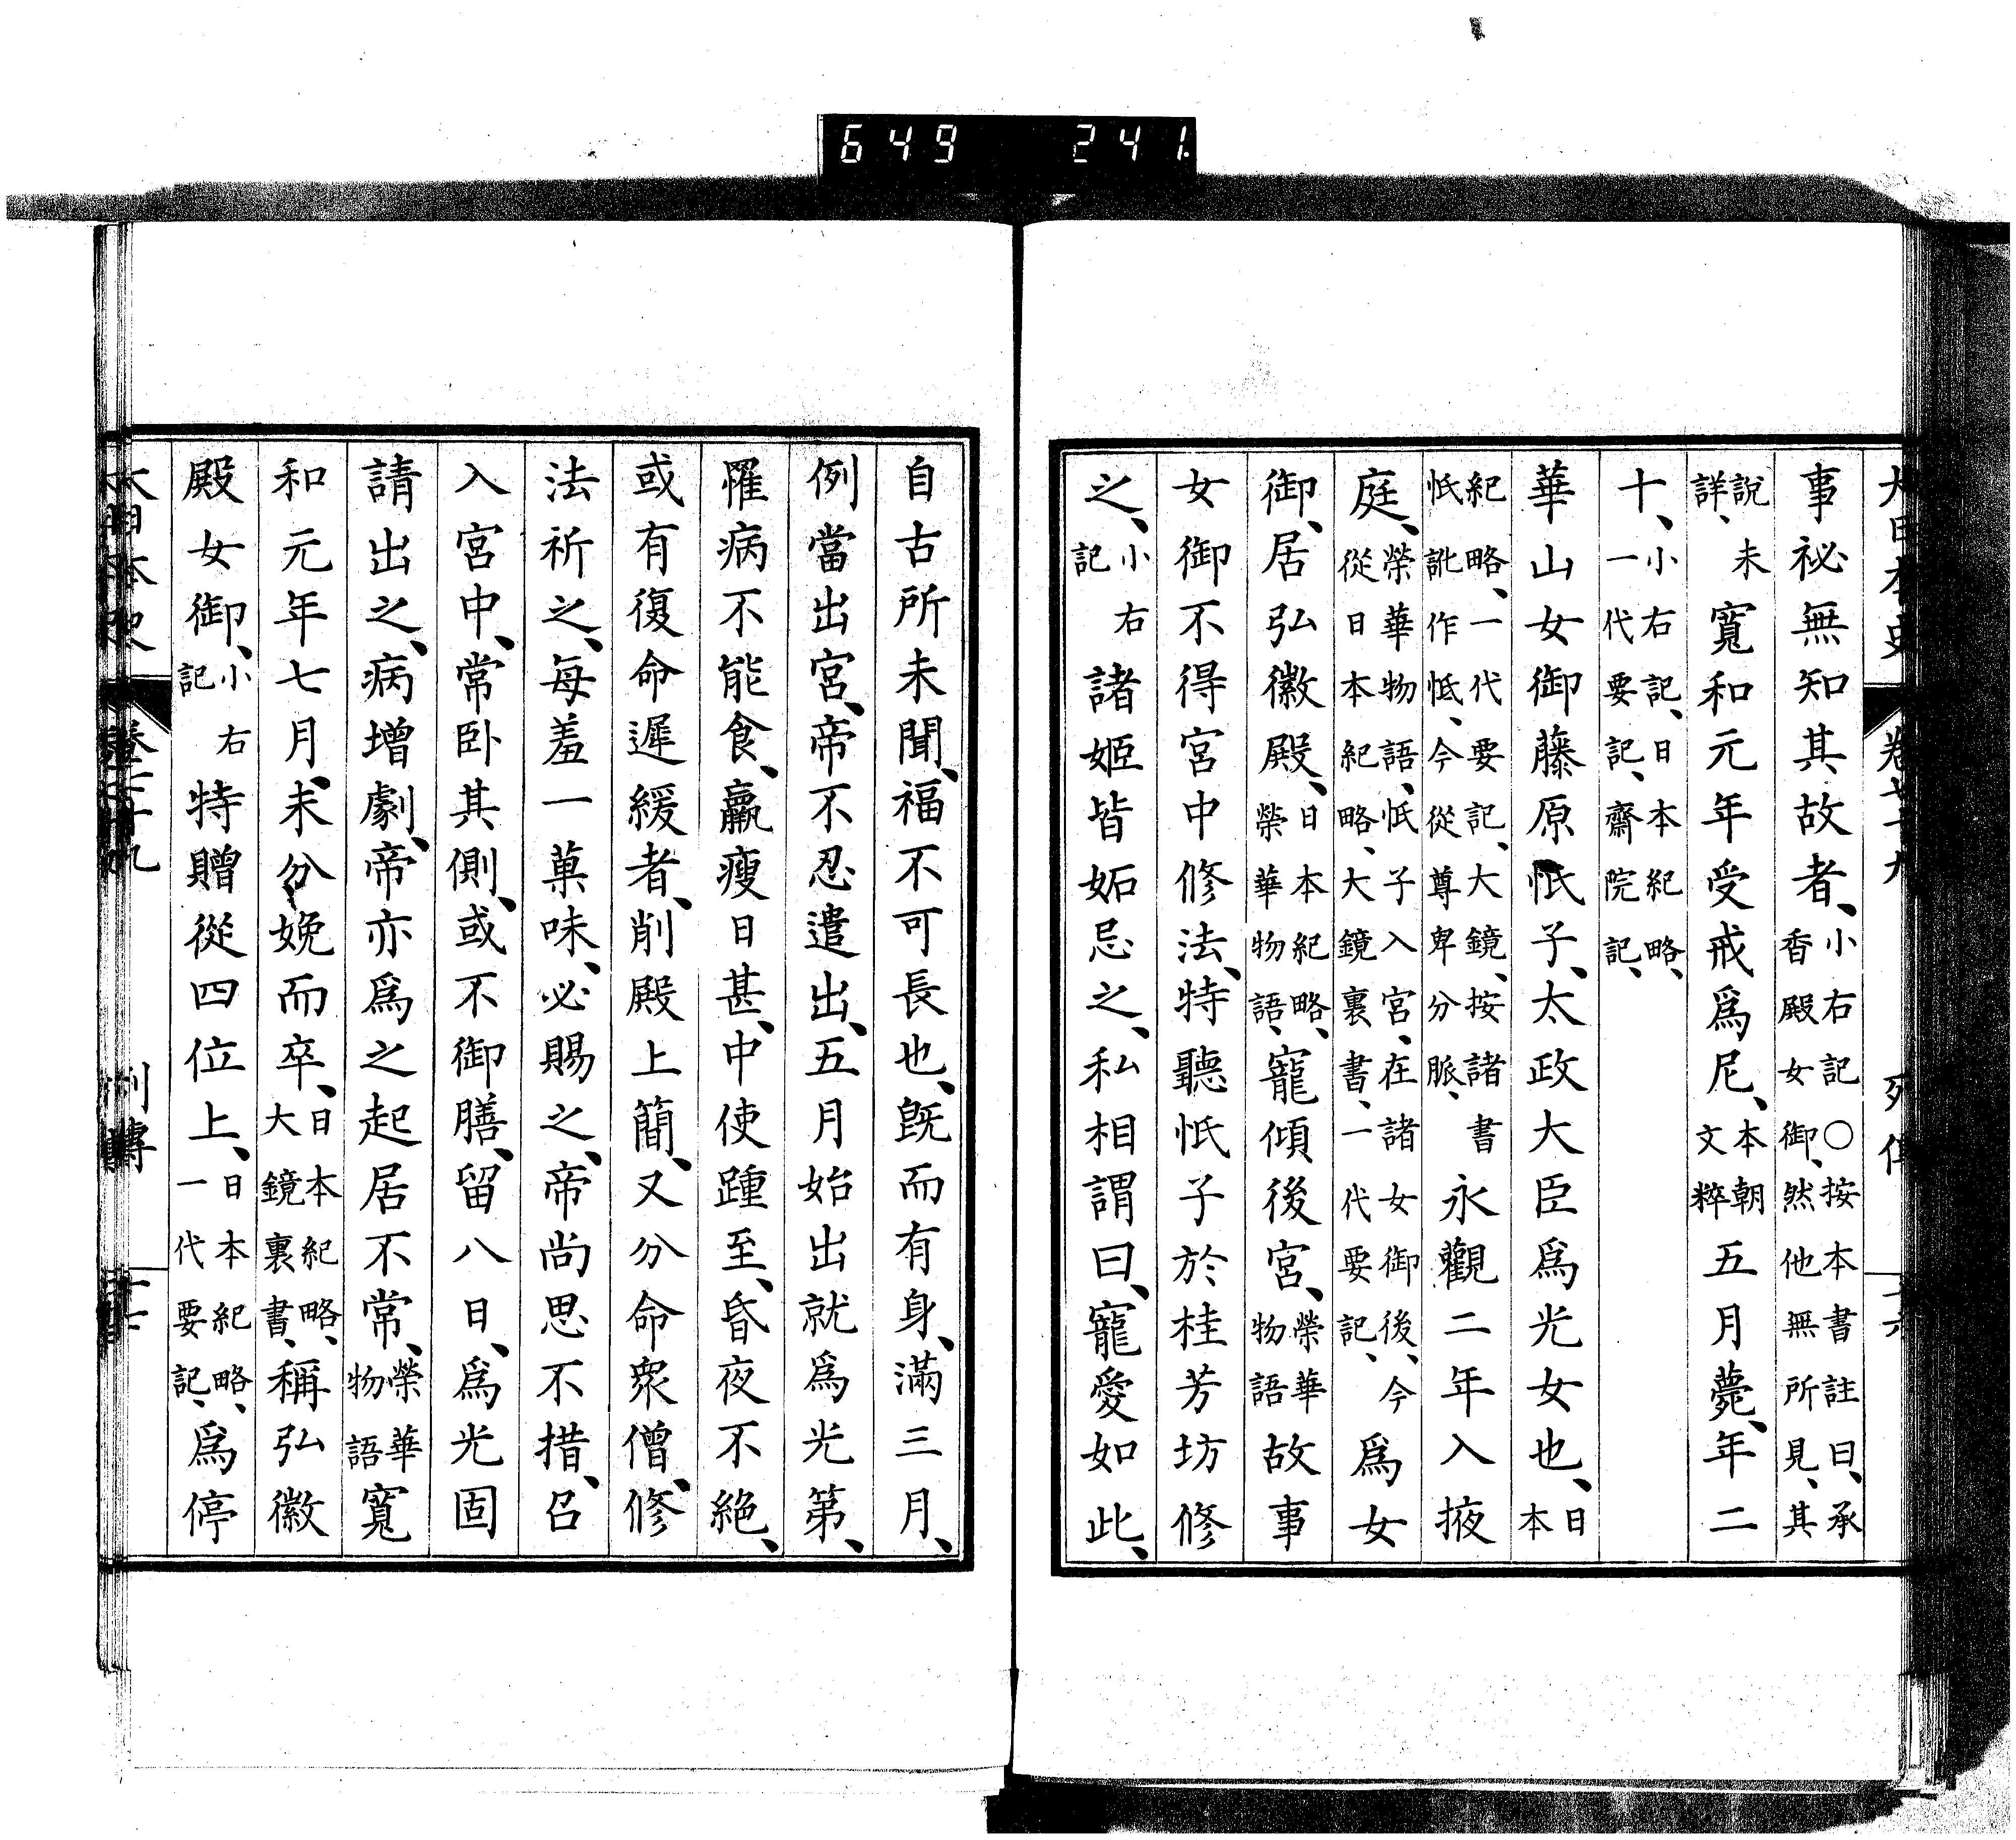 649 241
大日本史 卷七十九 列傳
事祕無知其故者、小右記○按本書註曰、承香殿女御、然他無所見、其
說未詳、寬和元年受戒爲尼、本朝文粹五月薨、年二
十、小右記、日本紀略、一代要記、齋院記、
華山女御藤原忯子、太政大臣爲光女也、日本
紀略、一代要記、大鏡、按諸書忯訛作怟、今從尊卑分脈、永觀二年入掖
庭、榮華物語、忯子入宮、在諸女御後、今從日本紀略、大鏡裏書、一代要記、爲女
御、居弘徽殿、日本紀略、榮華物語、寵傾後宮、榮華物語故事
女御不得宮中修法、特聽忯子於桂芳坊修
之、小右記諸姬皆妬忌之、私相謂曰、寵愛如此、
自古所未聞、福不可長也、旣而有身、滿三月、
例當出宮、帝不忍遣出、五月始出就爲光第、
罹病不能食、羸瘦日甚、中使踵至、昏夜不絕、
或有復命遲緩者、削殿上簡、又分命衆僧、修
法祈之、每羞一菓味、必賜之、帝尚思不措、召
入宮中、常臥其側、或不御膳、留八日、爲光固
請出之、病增劇、帝亦爲之起居不常、榮華物語寬
和元年七月、未分娩而卒、日本紀略、大鏡裏書、稱弘徽
殿女御、小右記特贈從四位上、日本紀略、一代要記、爲停
大日本史 卷七十九 列傳